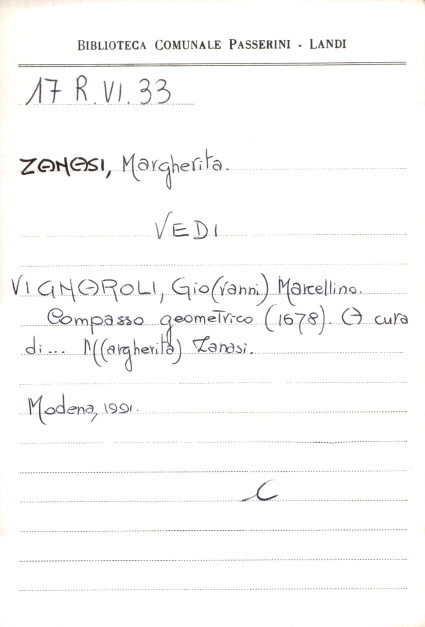 BIBLIOTECA COMUNALE PASSERINI - LANDI
17 R.VI.33
ZANASI, Margherita.
VEDI
VIGNAROLI, Gio(vanni) Marcellino.
Compasso geometrico (1678). A cura
di... M(argherita) Zanasi.
Modena, 1991.
C